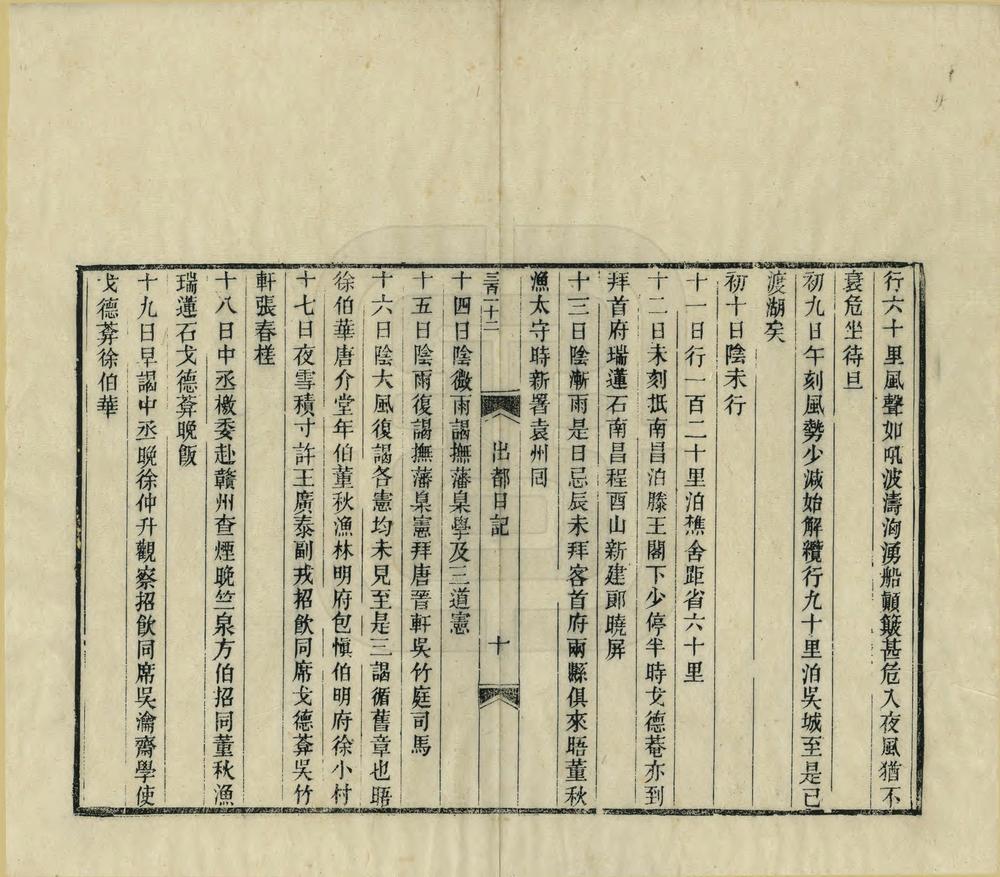 行六十里風聲如吼波濤洶湧船顛簸甚危入夜風猶不
衰危坐待旦
初九日午刻風勢少減始解纜行九十里泊吳城至是已
渡湖矣
初十日陰未行
十一日行一百二十里泊樵舍距省六十里
十二日未刻抵南昌泊滕王閣下少停半時戈德菴亦到
拜首府瑞蓮石南昌程酉山新建鄭曉屏
十三日陰漸雨是日忌辰未拜客首府兩縣俱來晤董秋
漁太守時新署袁州同
出都日記
十
十四日陰微雨謁撫藩臬學及三道憲
十五日陰雨復謁撫藩臬憲拜唐晉軒吳竹庭司馬
十六日陰大風復謁各憲均未見至是三謁循舊章也晤
徐伯華唐介堂年伯董秋漁林明府包愼伯明府徐小村
十七日夜雪積寸許王廣泰副戎招飲同席戈德葊吳竹
軒張春槎
十八日中丞檄委赴贛州查煙晚竺泉方伯招同董秋漁
瑞蓮石戈德葊晚飯
十九日早謁中丞晚徐仲升觀察招飲同席吳瀹齋學使
戈德葊徐伯華